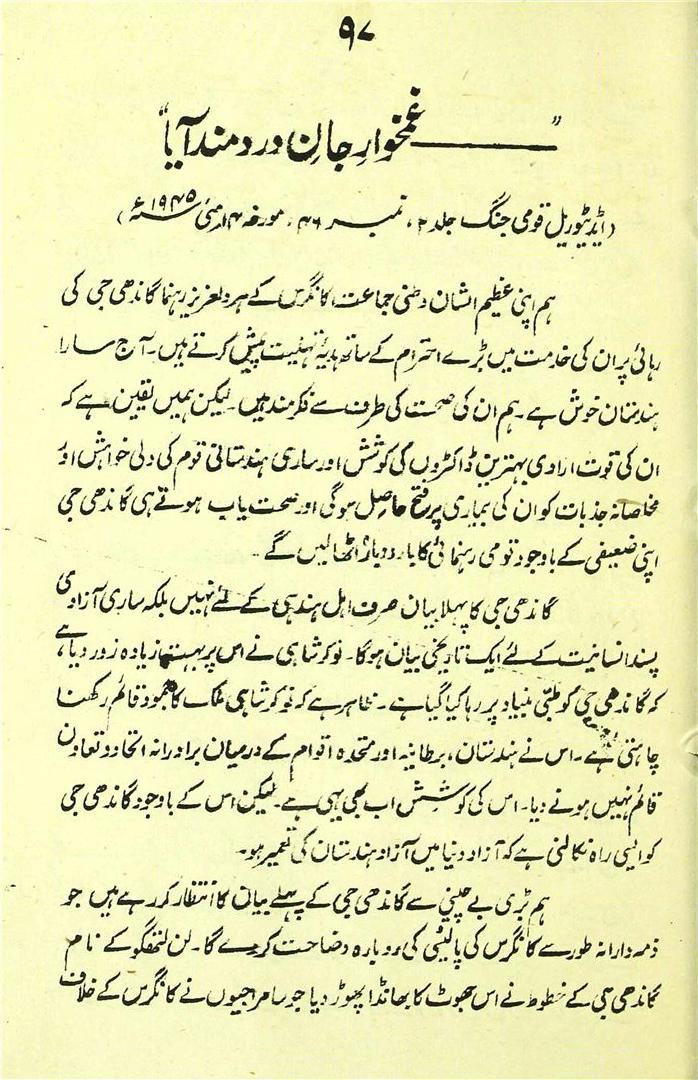 ۹۷
"ـــــــــ غمخوارِ جانِ دردمند آیا"
(ایڈیٹوریل قومی جنگ جلد ۲، نمبر ۴۶، مورخہ ۱۴ مئی ۱۹۴۵ء)
ہم اپنی عظیم الشان وطنی جماعت کانگرس کے ہردلعزیز رہنما گاندھی جی کی
رہائی پر ان کی خدمت میں بڑے احترام کے ساتھ ہدیۂ تہنیت پیش کرتے ہیں۔ آج سارا
ہندستان خوش ہے۔ ہم ان کی صحت کی طرف سے فکرمند ہیں۔ لیکن ہمیں یقین ہے کہ
ان کی قوت ارادی بہترین ڈاکٹروں کی کوشش اور ساری ہندستانی قوم کی دلی خواہش اور
مخلصانہ جذبات کو ان کی بیماری پر فتح حاصل ہوگی اور صحت یاب ہوتے ہی گاندھی جی
اپنی ضعیفی کے باوجود قومی رہنمائی کا بار دوبارہ اٹھا لیں گے۔
گاندھی جی کا پہلا بیان صرف اہل ہند ہی کے لئے نہیں بلکہ ساری آزادی
پسند انسانیت کے لئے ایک تاریخی بیان ہوگا۔ نوکرشاہی نے اس پر بہت زیادہ زور دیا ہے
کہ گاندھی جی کو طبّی بنیاد پر رہا کیا گیا ہے۔ ظاہر ہے کہ نوکرشاہی ملک کا جمود قائم رکھنا
چاہتی ہے۔ اس نے ہندستان، برطانیہ اور متحدہ اقوام کے درمیان برادرانہ اتحاد و تعاون
قائم نہیں ہونے دیا۔ اس کی کوشش اب بھی یہی ہے۔ لیکن اس کے باوجود گاندھی جی
کو ایسی راہ نکالنی ہے کہ آزاد دنیا میں آزاد ہندستان کی تعمیر ہو۔
ہم بڑی بے چینی سے گاندھی جی کے پہلے بیان کا انتظار کر رہے ہیں جو
ذمہ دارانہ طور سے کانگرس کی پالیسی کی دوبارہ وضاحت کرے گا۔ لن لتھگو کے نام
گاندھی جی کے خطوط نے اس جھوٹ کا بھانڈا پھوڑ دیا جو سامراجیوں نے کانگرس کے خلاف